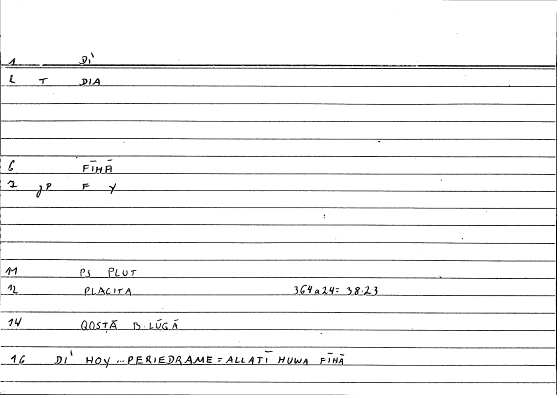 1 DI'
2 T DIA
6 FĪHĀ
7 jP F Y
11 PS PLUT
12 PLACITA 364a24= 38.23
14 QOSṬĀ B.LŪQĀ
16 DI' HOY ... PERIEDRAME = ALLATĪ HUWA FĪHĀ